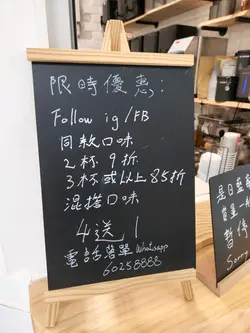 限時優惠:
Follow ig/FB
同款口味
2杯9折
3杯或以上85折
混搭口味
4送1
電話落單 Whatsapp
60258888
是日藍
暫停
Sorry